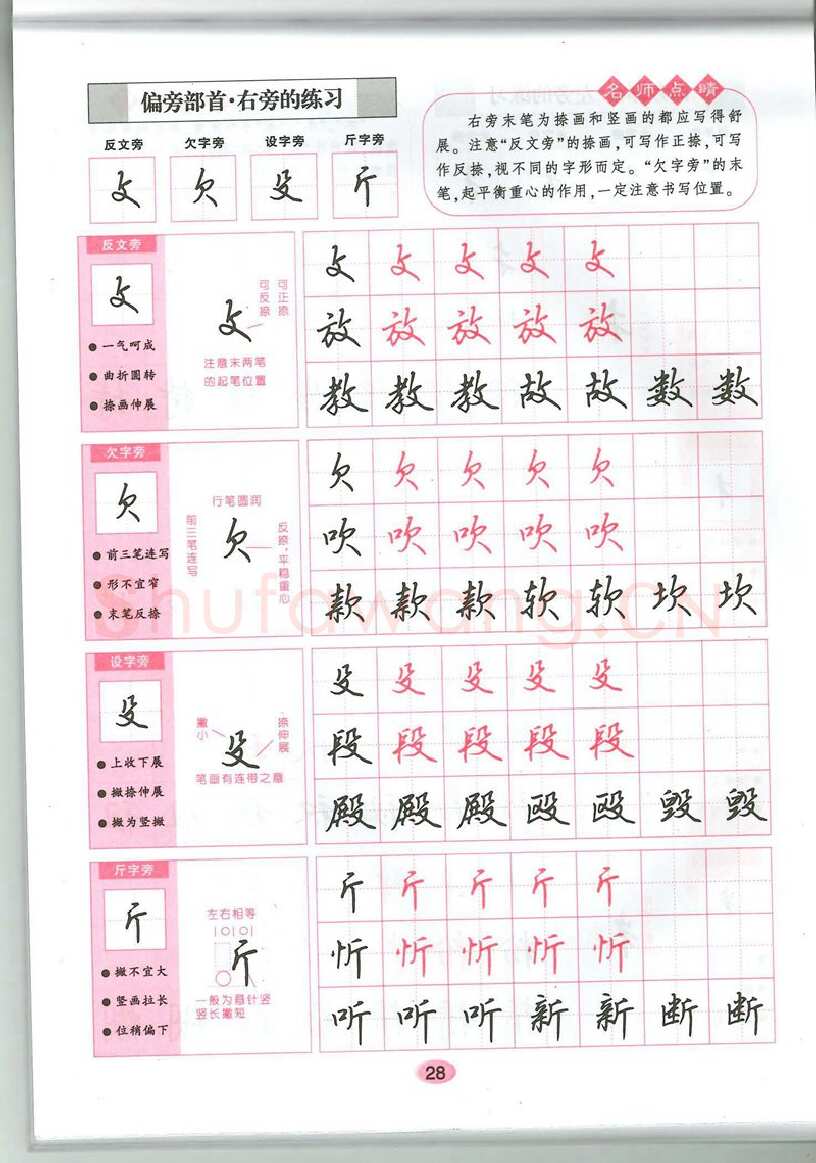 偏旁部首·右旁的练习
名师点睛
右旁末笔为捺画和竖画的都应写得舒
展。注意“反文旁”的捺画,可写作正捺,可写
作反捺,视不同的字形而定。“欠字旁”的末
笔,起平衡重心的作用,一定注意书写位置。
反文旁 欠字旁 设字旁 斤字旁
攵 欠 殳 斤
反文旁
攵
一气呵成
曲折圆转
捺画伸展
可正捺
可反捺
攵
注意末两笔
的起笔位置
攵 攵 攵 攵 攵
放 放 放 放 放
教 教 教 故 故 数 数
欠字旁
欠
前三笔连写
形不宜窄
末笔反捺
行笔圆润
前三笔连写
欠
反捺,平稳重心
欠 欠 欠 欠 欠
吹 吹 吹 吹 吹
款 款 款 软 软 坎 坎
shufawang.CN
设字旁
殳
上收下展
撇捺伸展
撇为竖撇
撇小
殳
捺伸展
笔画有连带之意
殳 殳 殳 殳 殳
段 段 段 段 段
殿 殿 殿 殴 殴 毁 毁
斤字旁
斤
撇不宜大
竖画拉长
位稍偏下
左右相等
斤
一般为悬针竖
竖长撇短
斤 斤 斤 斤 斤
忻 忻 忻 忻 忻
听 听 听 新 新 断 断
28